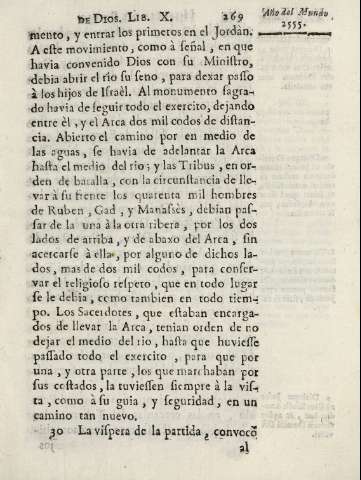 DE DIOS. LIB. X. 269
Año del Mundo
2555.
mento, y entrar los primeros en el Jordàn.
A este movimiento, como à señal, en que
havia convenido Dios con su Ministro,
debia abrir el rio su seno, para dexar passo
à los hijos de Israèl. Al monumento sagra-
do havia de seguir todo el exercito, dejando
entre èl, y el Arca dos mil codos de distan-
cia. Abierto el camino por en medio de
las aguas, se havia de adelantar la Arca
hasta el medio del rio; y las Tribus, en or-
den de batalla, con la circunstancia de lle-
var à su frente los quarenta mil hombres
de Ruben, Gad, y Manassès, debian pas-
sar de la una à la otra ribera, por los dos
lados de arriba, y de abaxo del Arca, sin
acercarse à ella, por alguno de dichos la-
dos, mas de dos mil codos, para conser-
var el religioso respeto, que en todo lugar
se le debia, como tambien en todo tiem-
po. Los Sacerdotes, que estaban encarga-
dos de llevar la Arca, tenian orden de no
dejar el medio del rio, hasta que huviesse
passado todo el exercito, para que por
una, y otra parte, los que marchaban por
sus costados, la tuviessen siempre à la vis-
ta, como à su guia, y seguridad, en un
camino tan nuevo.
30 La vispera de la partida, convocò
al